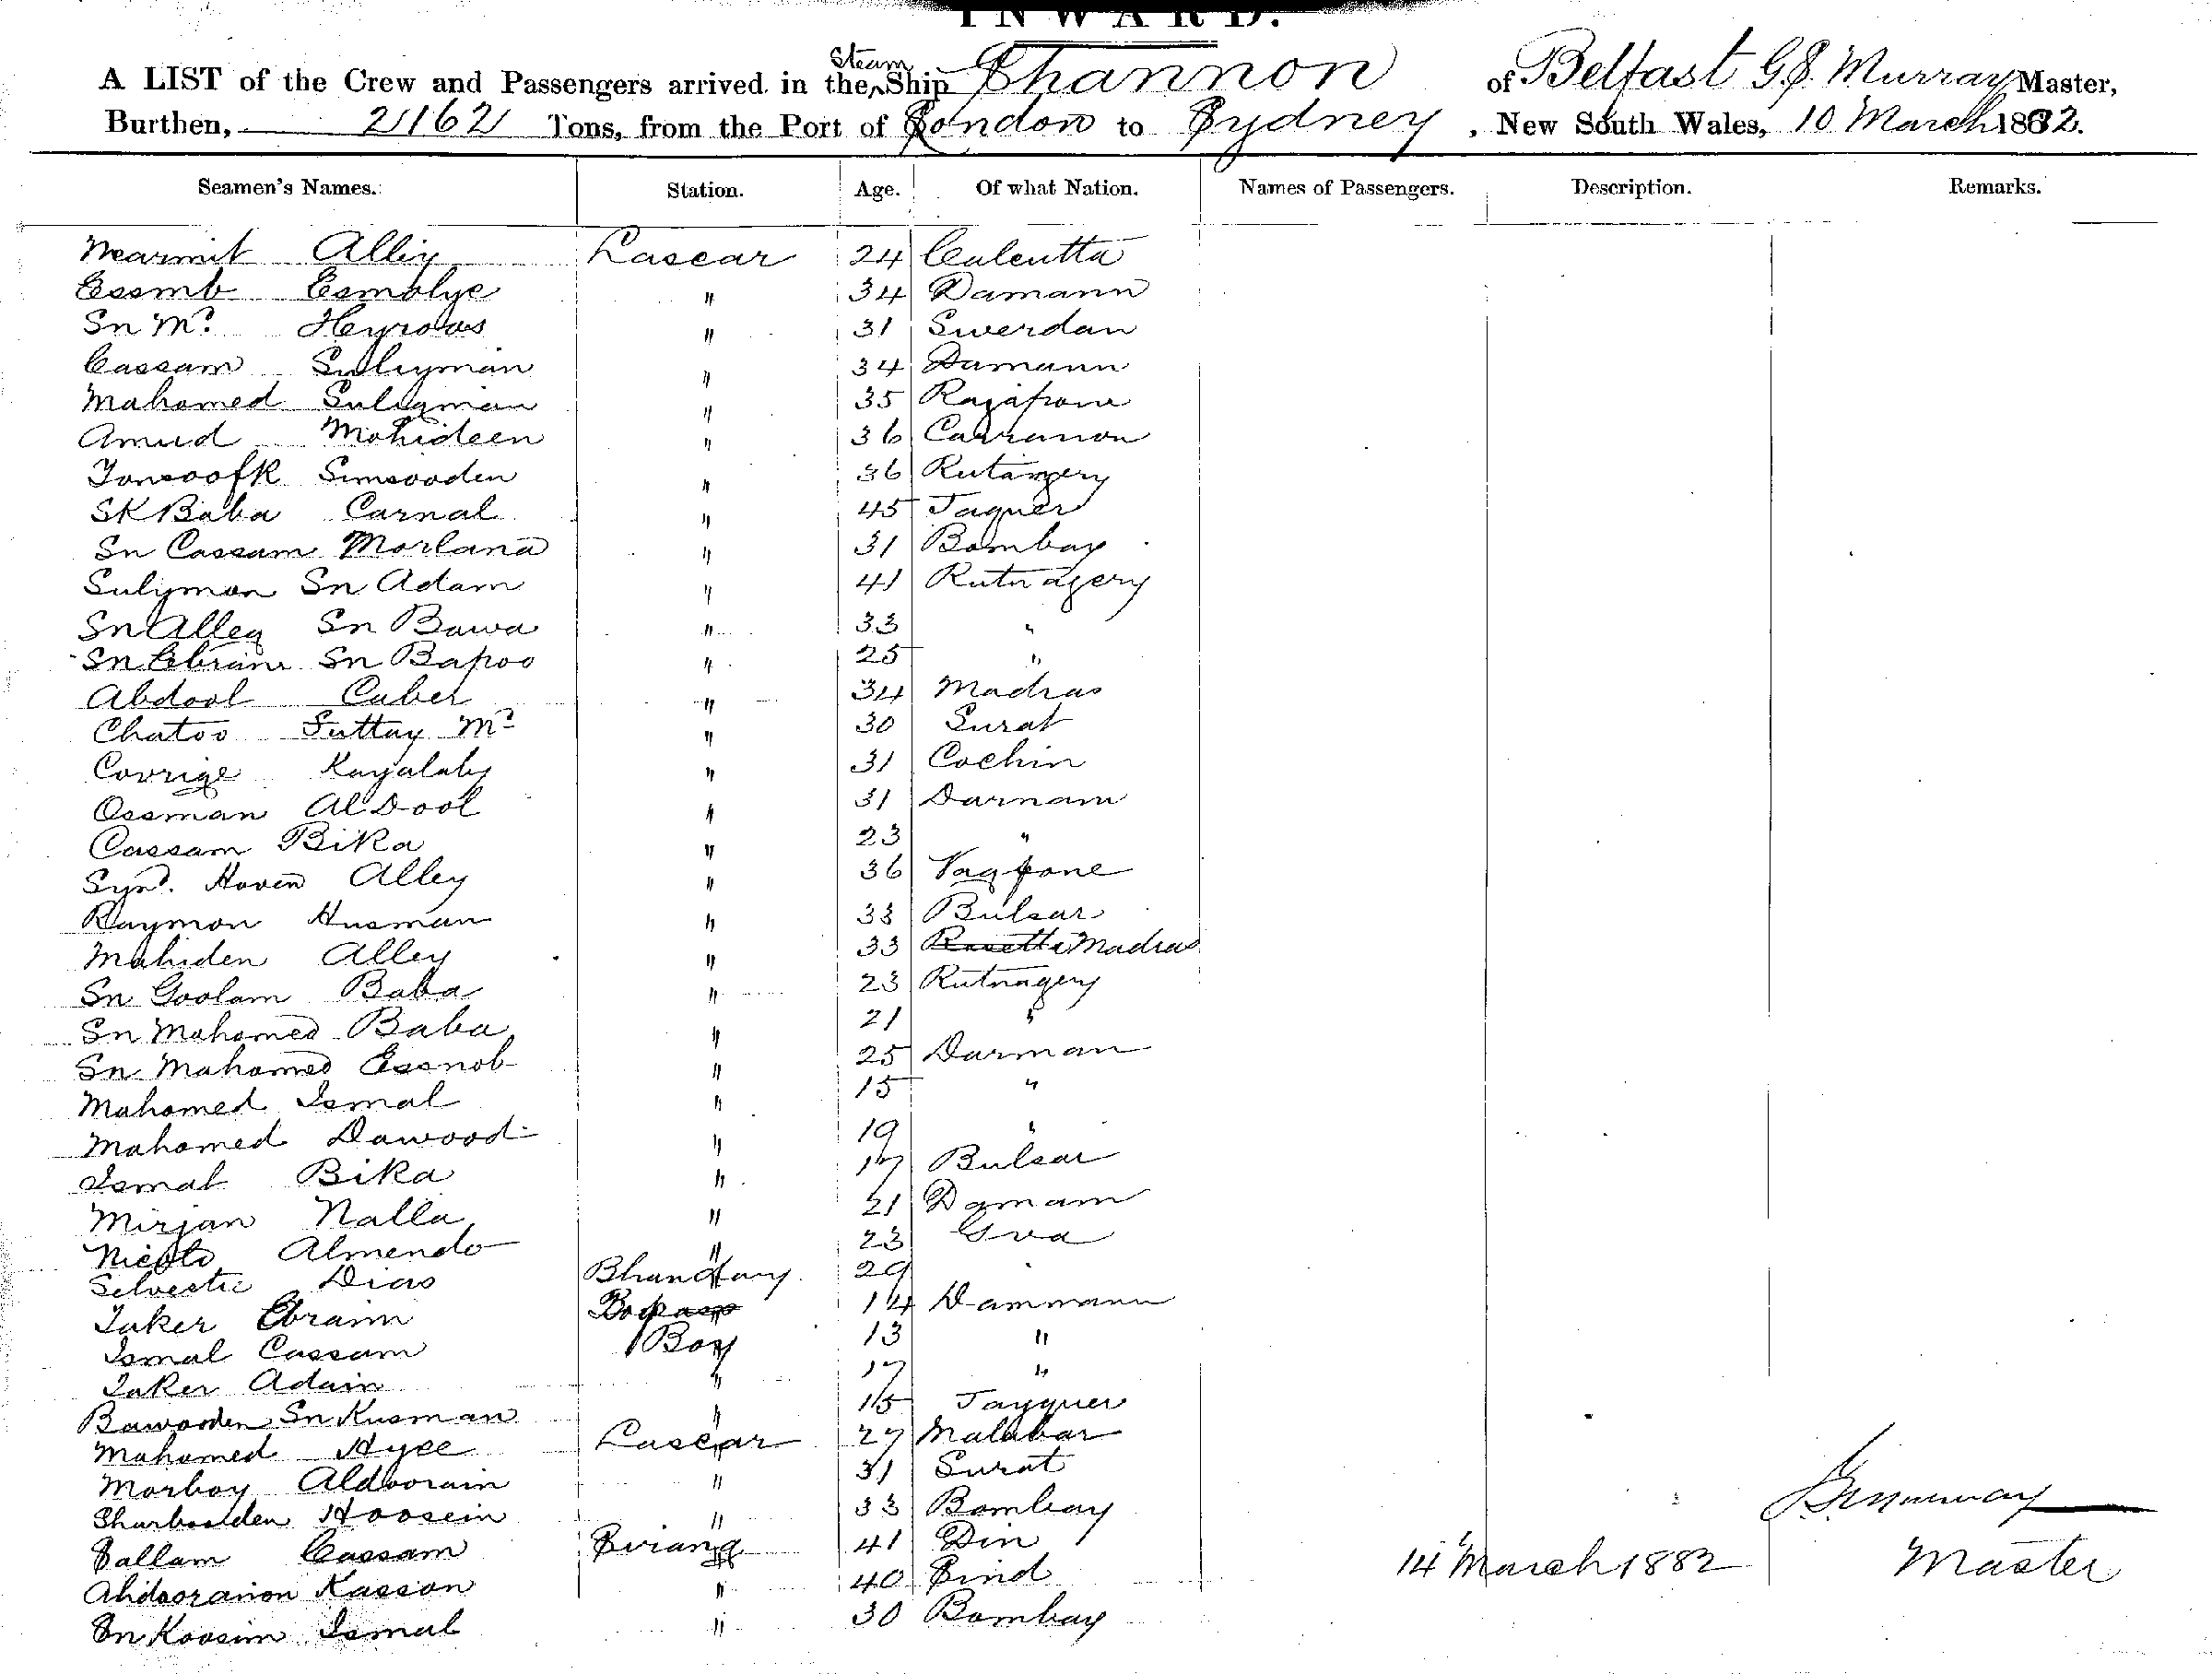 INWARD.
A LIST of the Crew and Passengers arrived in the Steam Ship Shannon of Belfast G. S. Murray Master,
Burthen, 2162 Tons, from the Port of London to Sydney, New South Wales, 10 March 1882.
Seamen's Names. Station. Age. Of what Nation. Names of Passengers. Description. Remarks.
Alliy Lascar 24 Calcutta
Essmb Esmalye " 34 Damann
Sn Md. " 31 Swerdan
Cassam Suliyman " 34 Damann
Mahomed Suliyman " 35
Amud Mohideen " 36
Simsooden " 36
SK Baba Carnal " 45 Taquer
Sn Cassam Morlana " 31 Bombay
Sulyman Sn Adam " 41 Rutnagery
Sn Alley Sn Bawa " 33 "
Sn Ebrim Sn Bapoo " 25 "
Abdool Cuber " 34 Madras
Chatoo Suttay Md " 30 Surat
Kayalaby " 31 Cochin
Ossman Al Dool " 31 Darnam
Cassam Bika " 23 "
Alley " 36
Raymon Husman " 33 Bulsar
Mahiden Alley " 33 Madras
Sn Goolam Baba " 23 Rutnagery
Sn Mahomed Baba " 21 "
Sn Mahomed Essnob " 25 Darman
Mahomed Ismal " 15 "
Mahomed Dawood " 19 "
Ismal Bika " 17 Bulsar
Mirjan Nalla " 21 Damam
Almendo " 23 Goa
Selvestie Dias Bhandary 29 "
Taker Ebraim 14 Dammann
Ismal Cassam Boy 13 "
Taker Adam " 17 "
Sn Kusman " 15 Tayquer
Mahomed Hyee Lascar 27 Malabar
Morboy Aldoorain " 31 Surat
Hoosein " 33 Bombay
Sallam Cassam Sirang 41 Din
Kasson " 40 Sind
Sn Koosim Ismal " 30 Bombay
14 March 1882
Master